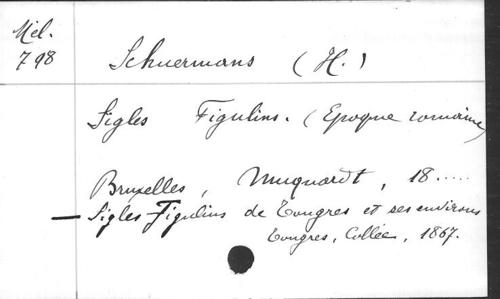 Mél.
798
Schuermans (H.)
Sigles Figulins. (Epoque romaine)
Bruxelles, Muquardt, 18.....
— Sigles Figulins de Tongres et ses environs
Tongres, Collée, 1867.